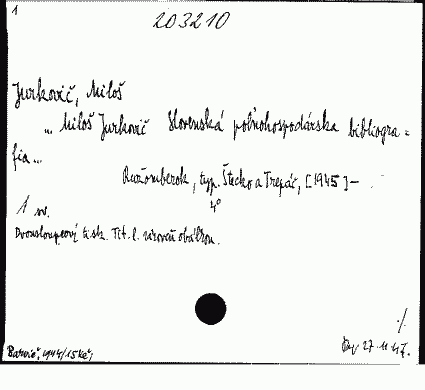 1
203210
Jurkovič, Miloš
... Miloš Jurkovič Slovenská poľnohospodárska bibliogra=
fia...
Ružomberok, typ. Štecko a Trepáč, [1945] –
4°
1 sv.
Dvousloupcový tisk. Tit. l. zároveň obálkou.
27 11 47.